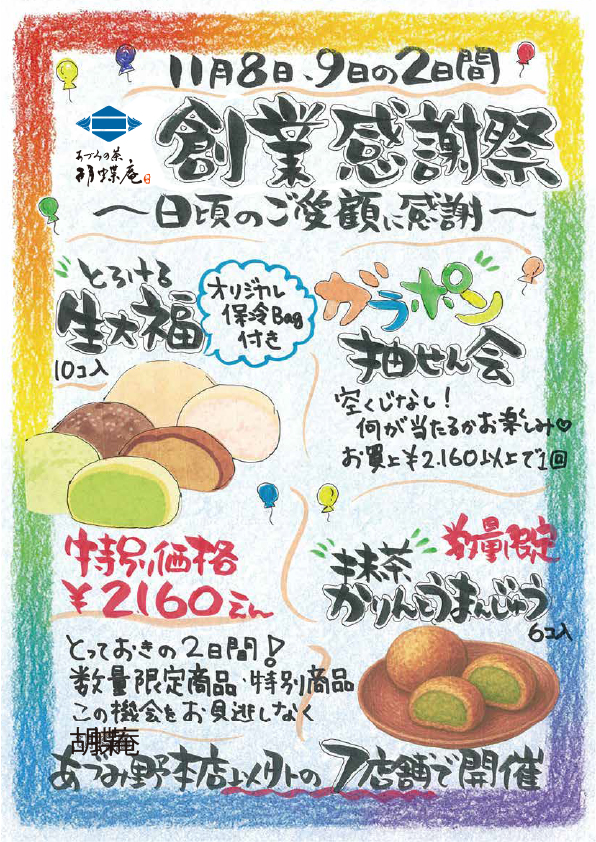 11月8日、9日の2日間
あづみの茶
胡蝶庵
創業感謝祭
～日頃のご愛顧に感謝～
とろける
生大福
10コ入
オリジナル
保冷Bag
付き
ガラポン
抽せん会
空くじなし!
何が当たるかお楽しみ♡
お買上¥2.160以上で1回
特別価格
¥2160えん
数量限定
抹茶
かりんとうまんじゅう
6コ入
とっておきの2日間!
数量限定商品・特別商品
この機会をお見逃しなく
胡蝶庵
あづみ野本店以外の7店舗で開催